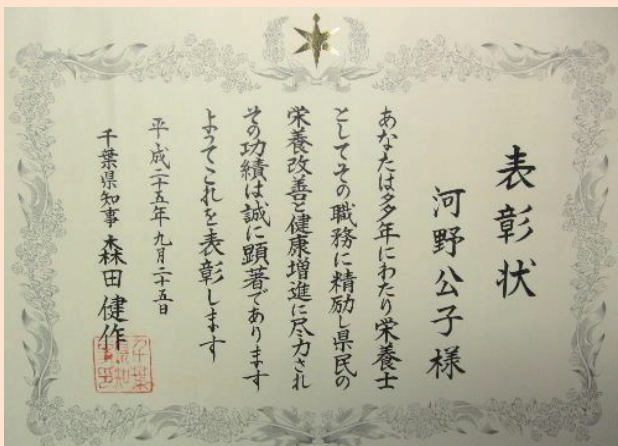 表彰状
河野公子様
あなたは多年にわたり栄養士
としてその職務に精励し県民の
栄養改善と健康増進に尽力され
その功績は誠に顕著であります
よってこれを表彰します
平成二十五年九月二十五日
千葉県知事 森田健作